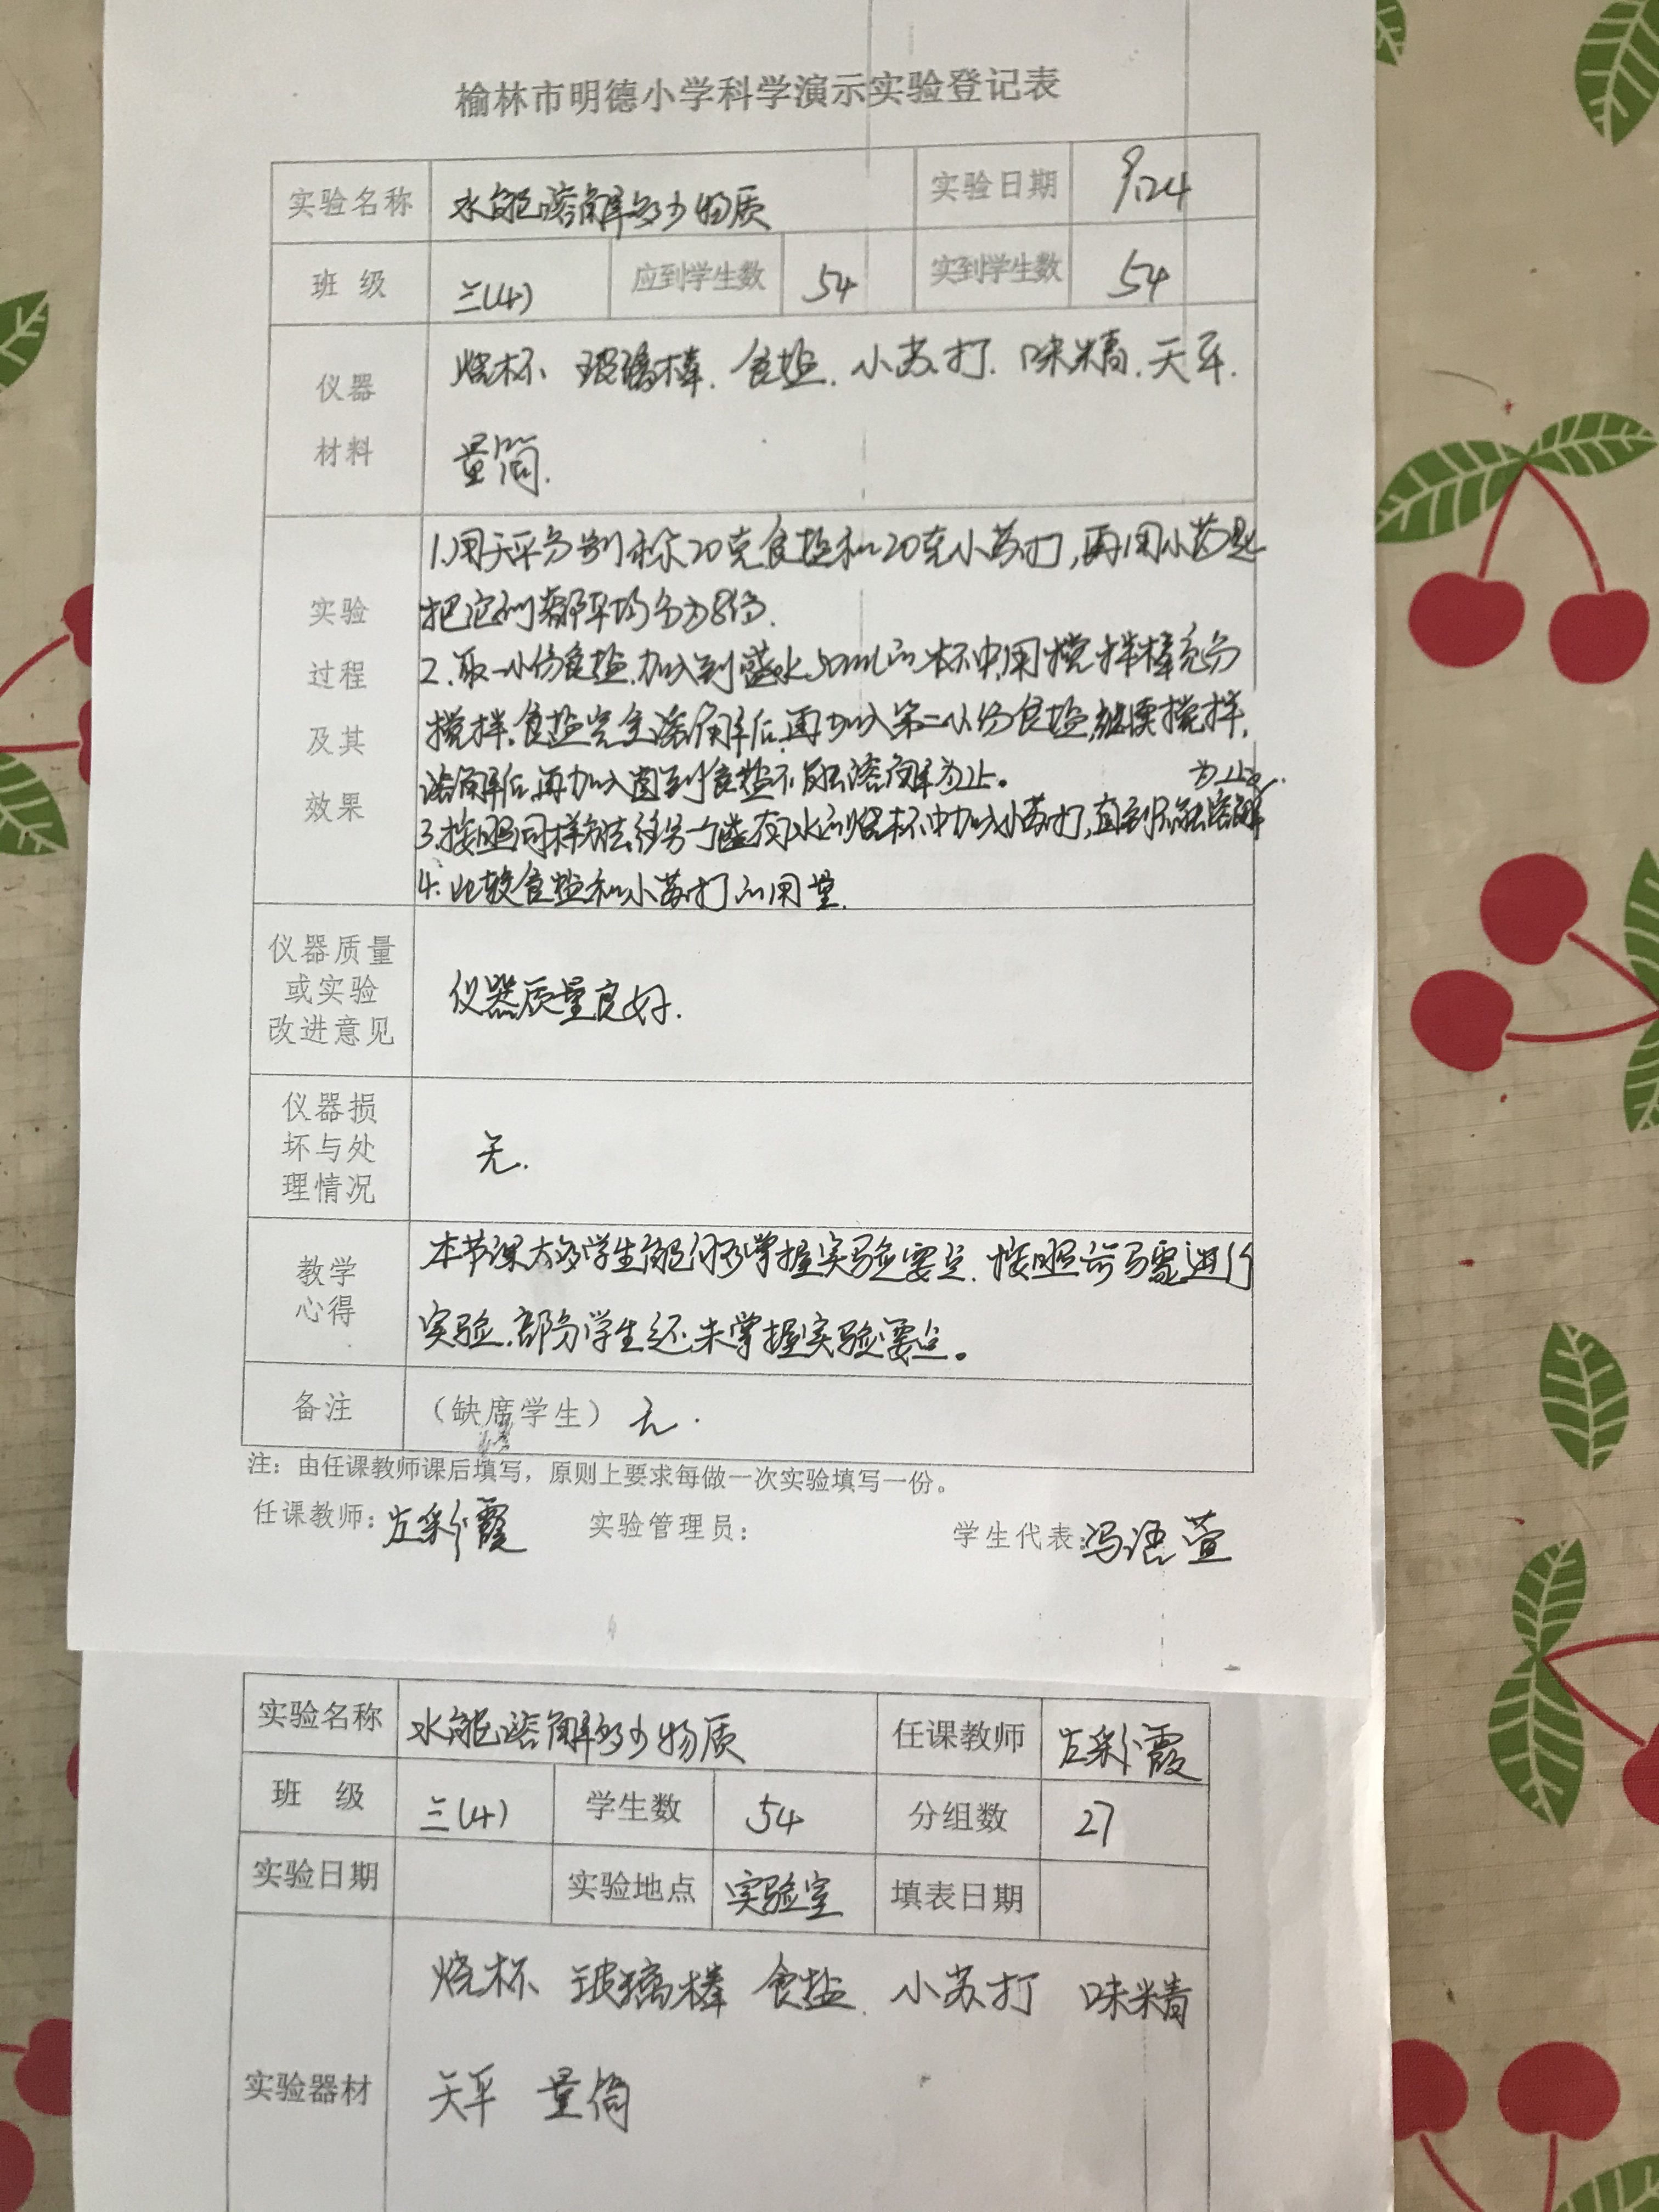 榆林市明德小学科学演示实验登记表
实验名称 水能溶解多少物质 实验日期 9.24
班 级 三(4) 应到学生数 54 实到学生数 54
仪器
材料
烧杯 玻璃棒. 食盐. 小苏打. 味精. 天平.
量筒.
实验
过程
及其
效果
1.用天平分别称取20克食盐和20克小苏打,再用小药匙
把它们都平均分为8份.
2.取一小份食盐.加入到盛水50ml的水杯中,用搅拌棒充分
搅拌.食盐完全溶解后,再加入第二小份食盐,继续搅拌.
溶解后,再加入直到食盐不能溶解为止。
3.按照同样方法往另一个盛有水的烧杯中加入小苏打,直到不能溶解
为止.
4.比较食盐和小苏打的用量.
仪器质量
或实验
改进意见
仪器质量良好.
仪器损
坏与处
理情况
无.
教学
心得
本节课大多学生能够掌握实验要点.按照步骤进行
实验.部分学生还未掌握实验要点。
备注 (缺席学生) 无.
注:由任课教师课后填写,原则上要求每做一次实验填写一份。
任课教师: 左彩霞 实验管理员: 学生代表: 冯语萱
实验名称 水能溶解多少物质 任课教师 左彩霞
班 级 三(4) 学生数 54 分组数 27
实验日期 实验地点 实验室 填表日期
实验器材
烧杯 玻璃棒 食盐. 小苏打 味精
天平 量筒